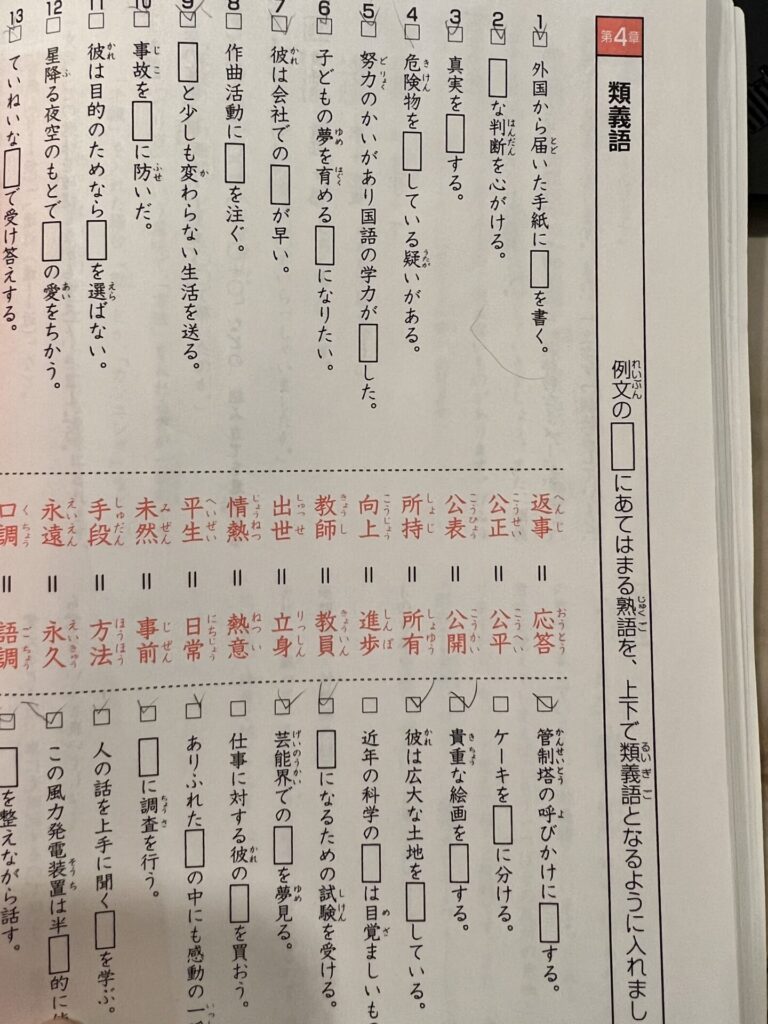 第4章
類義語
例文の□にあてはまる熟語を、上下で類義語となるように入れまし
1 外国から届いた手紙に□を書く。
返事=応答
管制塔の呼びかけに□する。
2 □な判断を心がける。
公正=公平
ケーキを□に分ける。
3 真実を□する。
公表=公開
貴重な絵画を□する。
4 危険物を□している疑いがある。
所持=所有
彼は広大な土地を□している。
5 努力のかいがあり国語の学力が□した。
向上=進歩
近年の科学の□は目覚ましいも
6 子どもの夢を育める□になりたい。
教師=教員
□になるための試験を受ける。
7 彼は会社での□が早い。
出世=立身
芸能界での□を夢見る。
8 作曲活動に□を注ぐ。
情熱=熱意
仕事に対する彼の□を買おう。
9 □と少しも変わらない生活を送る。
平生=日常
ありふれた□の中にも感動の一
10 事故を□に防いだ。
未然=事前
□に調査を行う。
11 彼は目的のためなら□を選ばない。
手段=方法
人の話を上手に聞く□を学ぶ。
12 星降る夜空のもとで□の愛をちかう。
永遠=永久
この風力発電装置は半□的に
13 ていねいな□で受け答えする。
口調=語調
□を整えながら話す。